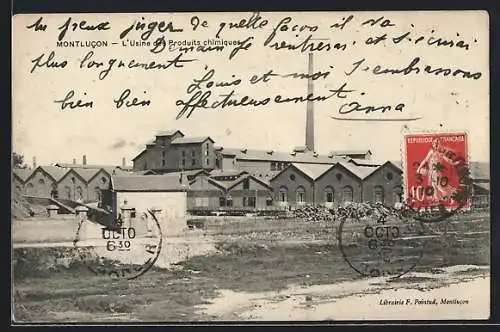 tu peux juger de quelle façon il va
MONTLUÇON — L'Usine des Produits chimiques
Demain je t'
rentrerai et t'écrirai
plus longuement
Louis et moi t'embrassons
bien bien affectueusement
Anna
RÉPUBLIQUE FRANÇAISE
10
OCTO
6 30
OCTO
6 30
Librairie F. Pointud, Montluçon